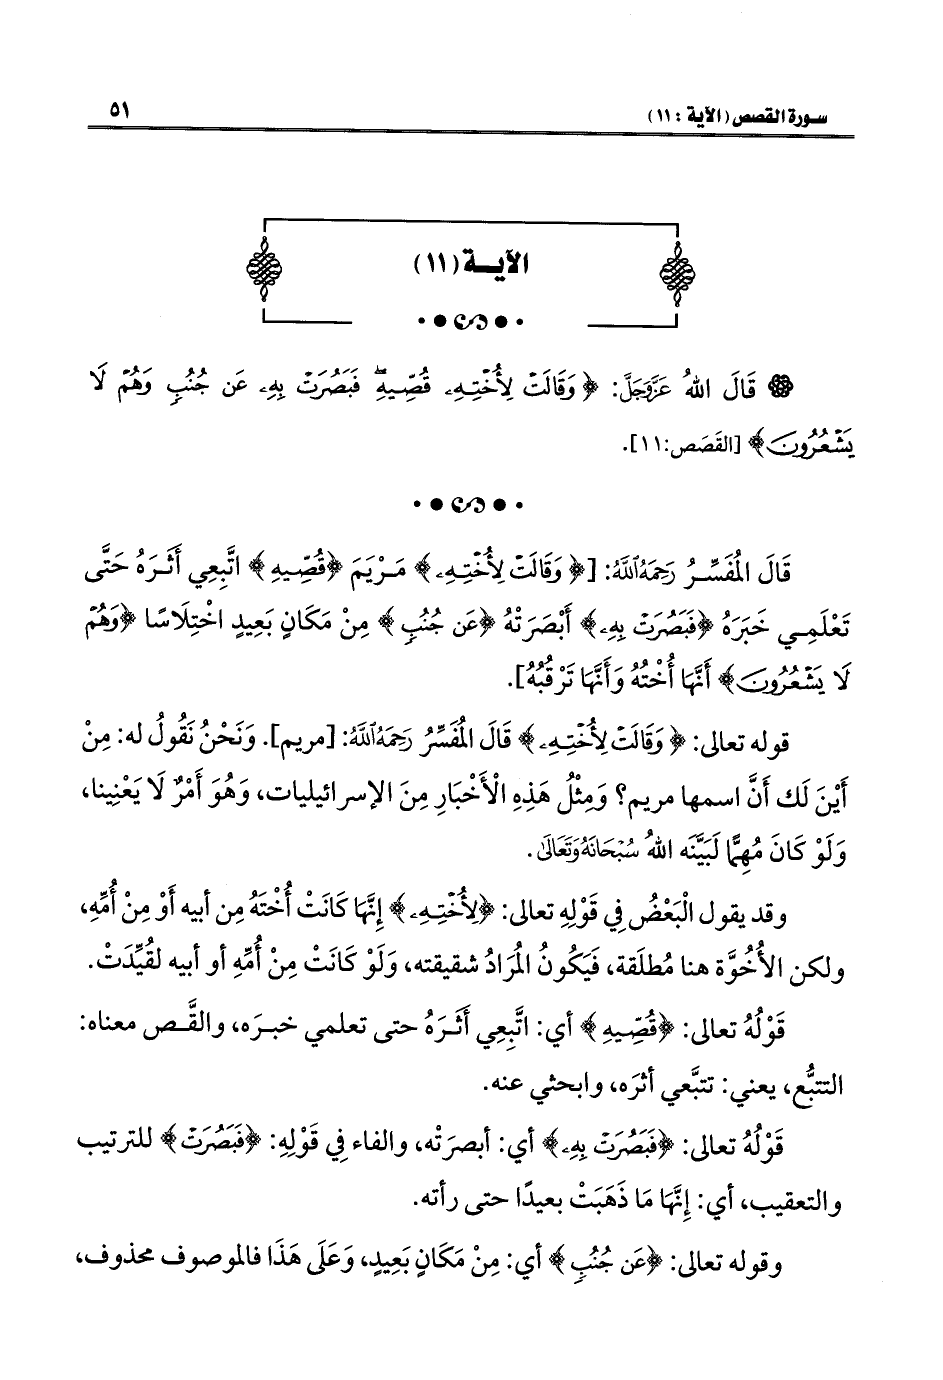 سورة القصص (الآية : ١١)
٥١
الآيــة (١١)
قَالَ اللهُ عَزَّوَجَلَّ: ﴿ وَقَالَتْ لِأُخْتِهِۦ قُصِّيهِ ۖ فَبَصُرَتْ بِهِۦ عَن جُنُبٍ وَهُمْ لَا
يَشْعُرُونَ ﴾ [القَصَص:١١].
قَالَ المُفَسِّرُ رَحِمَهُ ٱللَّهُ: [﴿ وَقَالَتْ لِأُخْتِهِۦ ﴾ مَرْيَمَ ﴿قُصِّيهِ ﴾ اتَّبِعِي أَثَرَهُ حَتَّى
تَعْلَمِي خَبَرَهُ ﴿فَبَصُرَتْ بِهِۦ ﴾ أَبْصَرَتْهُ ﴿عَن جُنُبٍ ﴾ مِنْ مَكَانٍ بَعِيدٍ اخْتِلَاسًا ﴿وَهُمْ
لَا يَشْعُرُونَ ﴾ أَنَّهَا أُخْتُهُ وَأَنَّهَا تَرْقُبُهُ].
قوله تعالى: ﴿ وَقَالَتْ لِأُخْتِهِۦ ﴾ قَالَ المُفَسِّرُ رَحِمَهُ ٱللَّهُ: [مريم]. وَنَحْنُ نَقُولُ له: مِنْ
أَيْنَ لَك أَنَّ اسمها مريم؟ وَمِثْلُ هَذِهِ الْأَخْبَارِ مِنَ الإسرائيليات، وَهُوَ أَمْرٌ لَا يَعْنِينا،
وَلَوْ كَانَ مُهِمًّا لَبَيَّنَه اللهُ سُبْحَانَهُ وَتَعَالَىٰ.
وقد يقول الْبَعْضُ فِي قَوْلِهِ تعالى: ﴿لِأُخْتِهِۦ ﴾ إِنَّهَا كَانَتْ أُخْتَهُ مِن أبيه أَوْ مِنْ أُمِّهِ،
ولكن الأُخُوَّة هنا مُطلَقة، فَيَكُونُ المُرَادُ شقيقته، وَلَوْ كَانَتْ مِنْ أُمِّهِ أو أبيه لقُيِّدَتْ.
قَوْلُهُ تعالى: ﴿قُصِّيهِ ﴾ أي: اتَّبِعِي أَثَرَهُ حتى تعلمي خبرَه، والقَّص معناه:
التتبُّع، يعني: تتبَّعي أثرَه، وابحثي عنه.
قَوْلُهُ تعالى: ﴿فَبَصُرَتْ بِهِۦ ﴾ أي: أبصرَتْه، والفاء فِي قَوْلِهِ: ﴿فَبَصُرَتْ ﴾ للترتيب
والتعقيب، أي: إِنَّهَا مَا ذَهَبَتْ بعيدًا حتى رأته.
وقوله تعالى: ﴿عَن جُنُبٍ ﴾ أي: مِنْ مَكَانٍ بَعِيدٍ، وَعَلَى هَذَا فالموصوف محذوف،